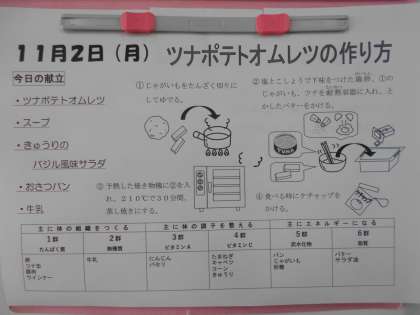 11月2日（月） ツナポテトオムレツの作り方
今日の献立
・ツナポテトオムレツ
・スープ
・きゅうりの
バジル風味サラダ
・おさつパン
・牛乳
①じゃがいもをたんざく切りに
してゆでる。
②塩とこしょうで下味をつけた
、①の
じゃがいも、ツナを耐熱容器に入れ、と
かしたバターをかける。
③予熱した焼き物機に②を入
れ、210℃で30分間、
蒸し焼きにする。
④食べる時にケチャップを
かける。
主に体の組織をつくる 主に体の調子を整える 主にエネルギーになる
1群 2群 3群 4群 5群 6群
たんぱく質 無機質 ビタミンA ビタミンC 炭水化物 脂質
卵 牛乳 にんじん たまねぎ パン バター
ツナ缶 パセリ キャベツ じゃがいも サラダ油
鶏肉 コーン 砂糖
ウインナー きゅうり